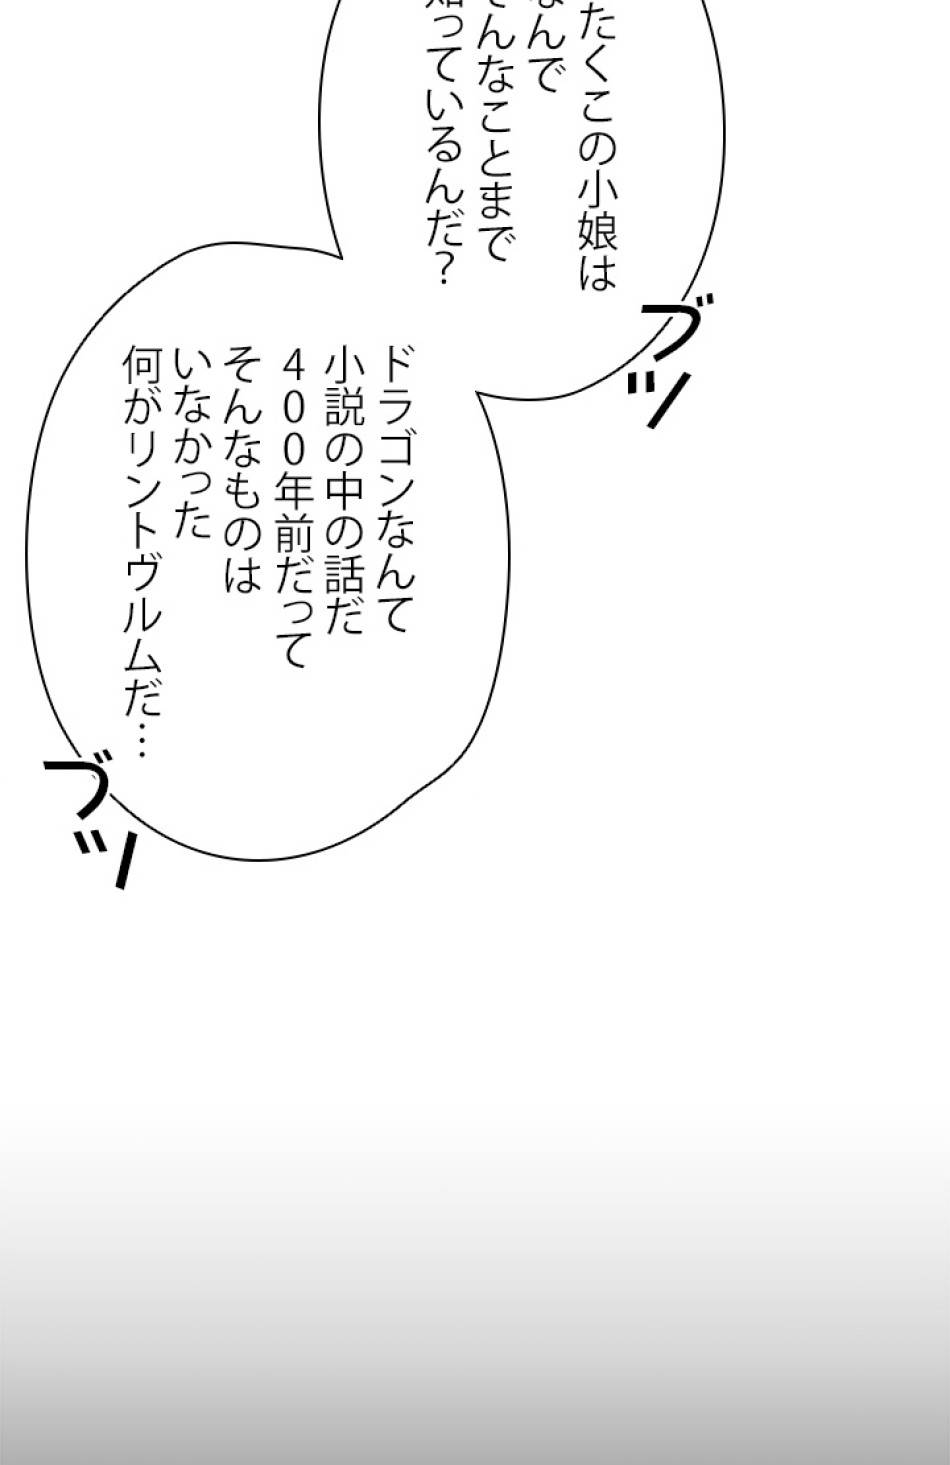 たくこの小娘は
なんで
そんなことまで
知っているんだ？
ブツ
ドラゴンなんて
小説の中の話だ
400年前だって
そんなものは
いなかった
何がリントヴルムだ…
ブツ